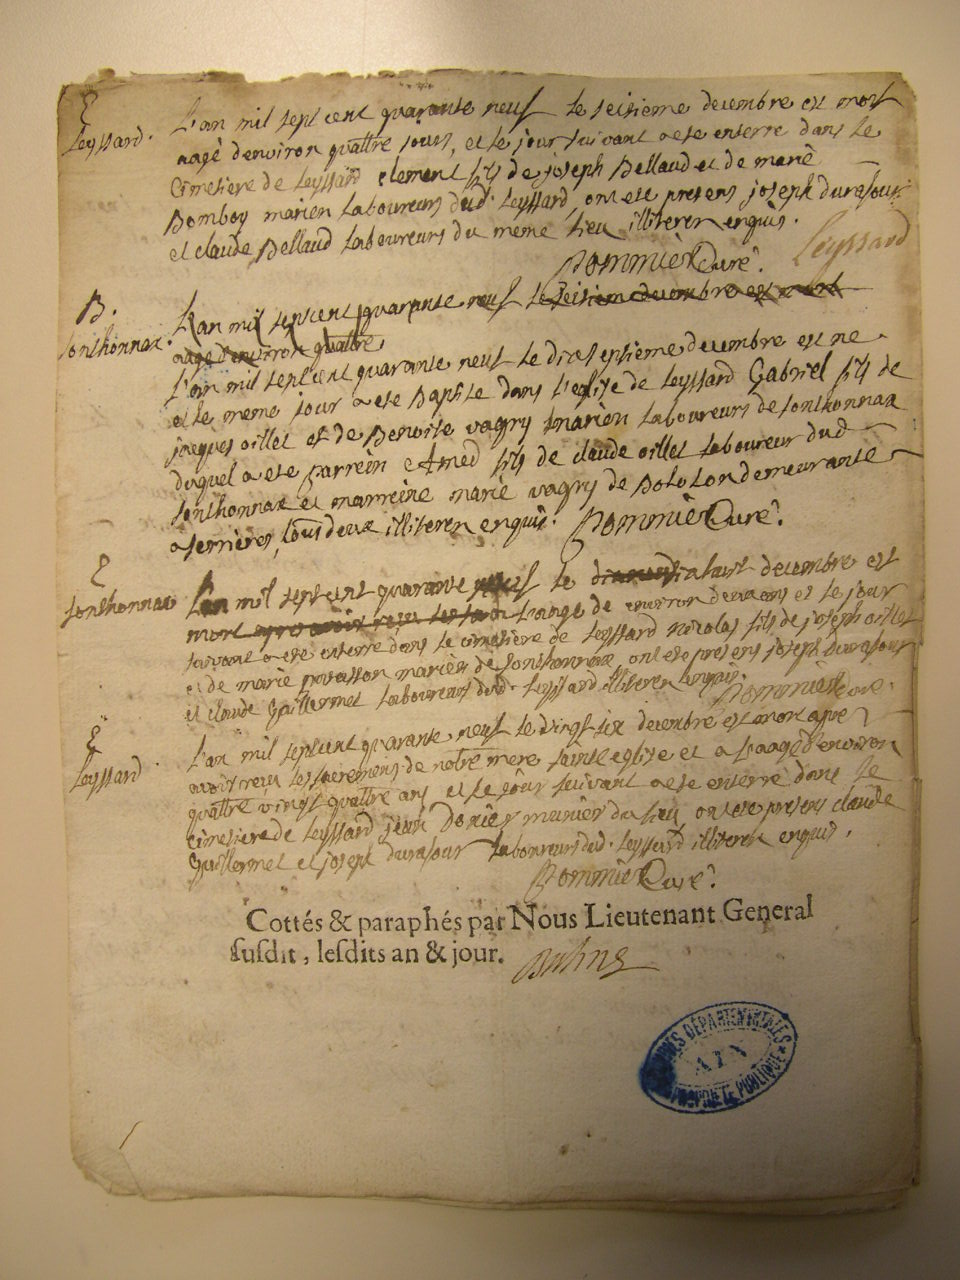 E
Leyssard.
L'an mil sept cent quarante neuf le seisieme decembre est mort
aagé d'environ quattre jours, et le jour suivant a ete enterre dans le
Cimetiere de Leyssard clement fils de joseph Bellaud et de marie
Bomboy mariën Laboureurs dud. Leyssard, ont ete presens joseph durafour
et claude Bellaud Laboureurs du meme lieu illiteren enquis.
Pommiër Curé.
Leyssard
B.
sonthonnax.
L'an mil septcent quarante neuf le seisieme decembre est mort
aagé d'environ quattre
L'an mil septcent quarante neuf le dixseptieme decembre est ne
et le meme jour a ete Baptisé dans l'eglise de Leyssard Gabriel fils de
jacques oillet et de Benoite vagry mariën Laboureurs de sonthonnax
duquel a ete parrein Amed fils de claude oillet laboureur dud
sonthonnax et marreine marie vagry de Bolozon demeurante
a serriéres, tous deux illiteren enquis. Pommiër Curé.
E
sonthonnax
L'an mil septcent quarante neuf le dixhuit decembre est
mort a l'aage de environ deux ans et le jour
suivant a ete enterre dans le cimetiére de Leyssard nicolas fils de joseph oillet
et de marie mariën de sonthonnax, ont ete presens joseph durafour
et claude Guillermet Laboureurs dud. Leyssard illiteren enquis.
Pommiër Curé.
E
Leyssard
L'an mil septcent quarante neuf le vingt six decembre est mort apre
avoit reçu les sacremens de notre mere sainte eglise et a l'aage d'environ
quattre vingt quattre ans et le jour suivant a ete enterré dans le
cimetiére de Leyssard jean munier du lieu, ont ete presens claude
Guillermet et joseph durafour Laboureurs dud. Leyssard illiteren enquis.
Pommiër Curé.
Cottés & paraphés par Nous Lieutenant General
susdit, lesdits an & jour.
ARCHIVES DÉPARTEMENTALES
AIN
PROPRIÉTÉ PUBLIQUE